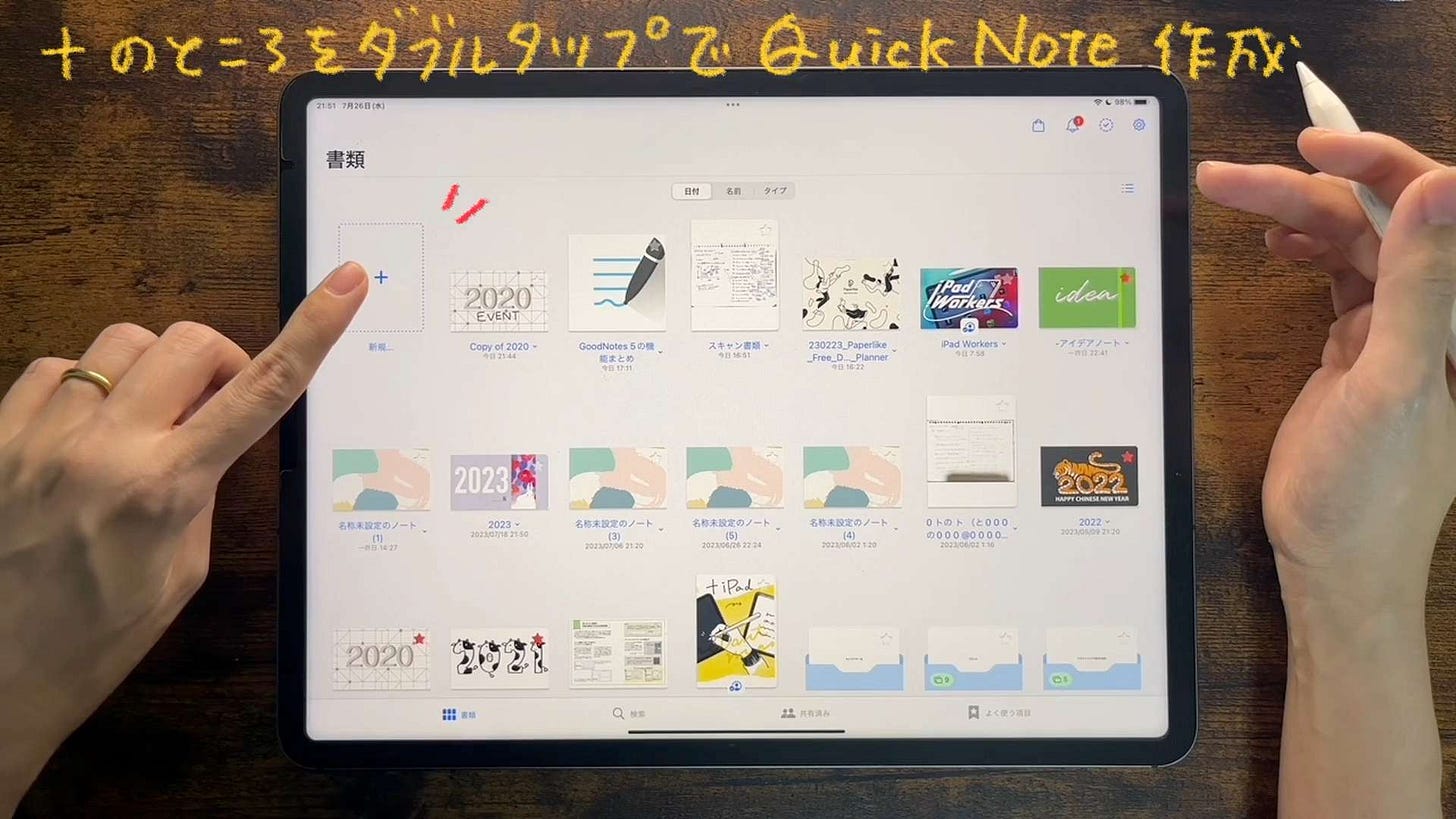 +のところをダブルタップで Quick Note 作成
21:51 7月26日(水)
98%
1
書類
日付 名前 タイプ
2020
EVENT
iPad
Workers
idea
新規...
Copy of 2020
今日 21:44
GoodNotes 5の機
能まとめ
今日 17:11
スキャン書類
今日 16:51
230223_Paperlike
_Free_D..._Planner
今日 16:22
iPad Workers
今日 7:58
-アイデアノート
一昨日 22:41
2023
2022
HAPPY CHINESE NEW YEAR
名称未設定のノート
(1)
一昨日 14:27
2023
2023/07/18 21:50
名称未設定のノート
(3)
2023/07/06 21:20
名称未設定のノート
(5)
2023/06/26 22:24
名称未設定のノート
(4)
2023/06/02 1:20
0トのト (と000
の000@0000...
2023/06/02 1:16
2022
2023/05/09 21:20
2020
2021
+iPad
9
5
書類 検索 共有済み よく使う項目